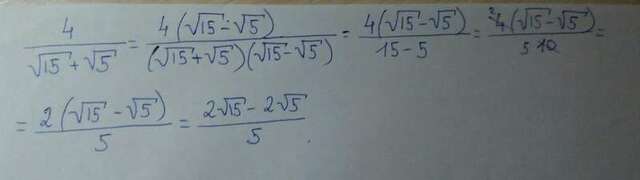 4/(√15+√5) = 4(√15-√5)/((√15+√5)(√15-√5)) = 4(√15-√5)/(15-5) = ²4(√15-√5)/(5 10) =
= 2(√15-√5)/5 = (2√15-2√5)/5